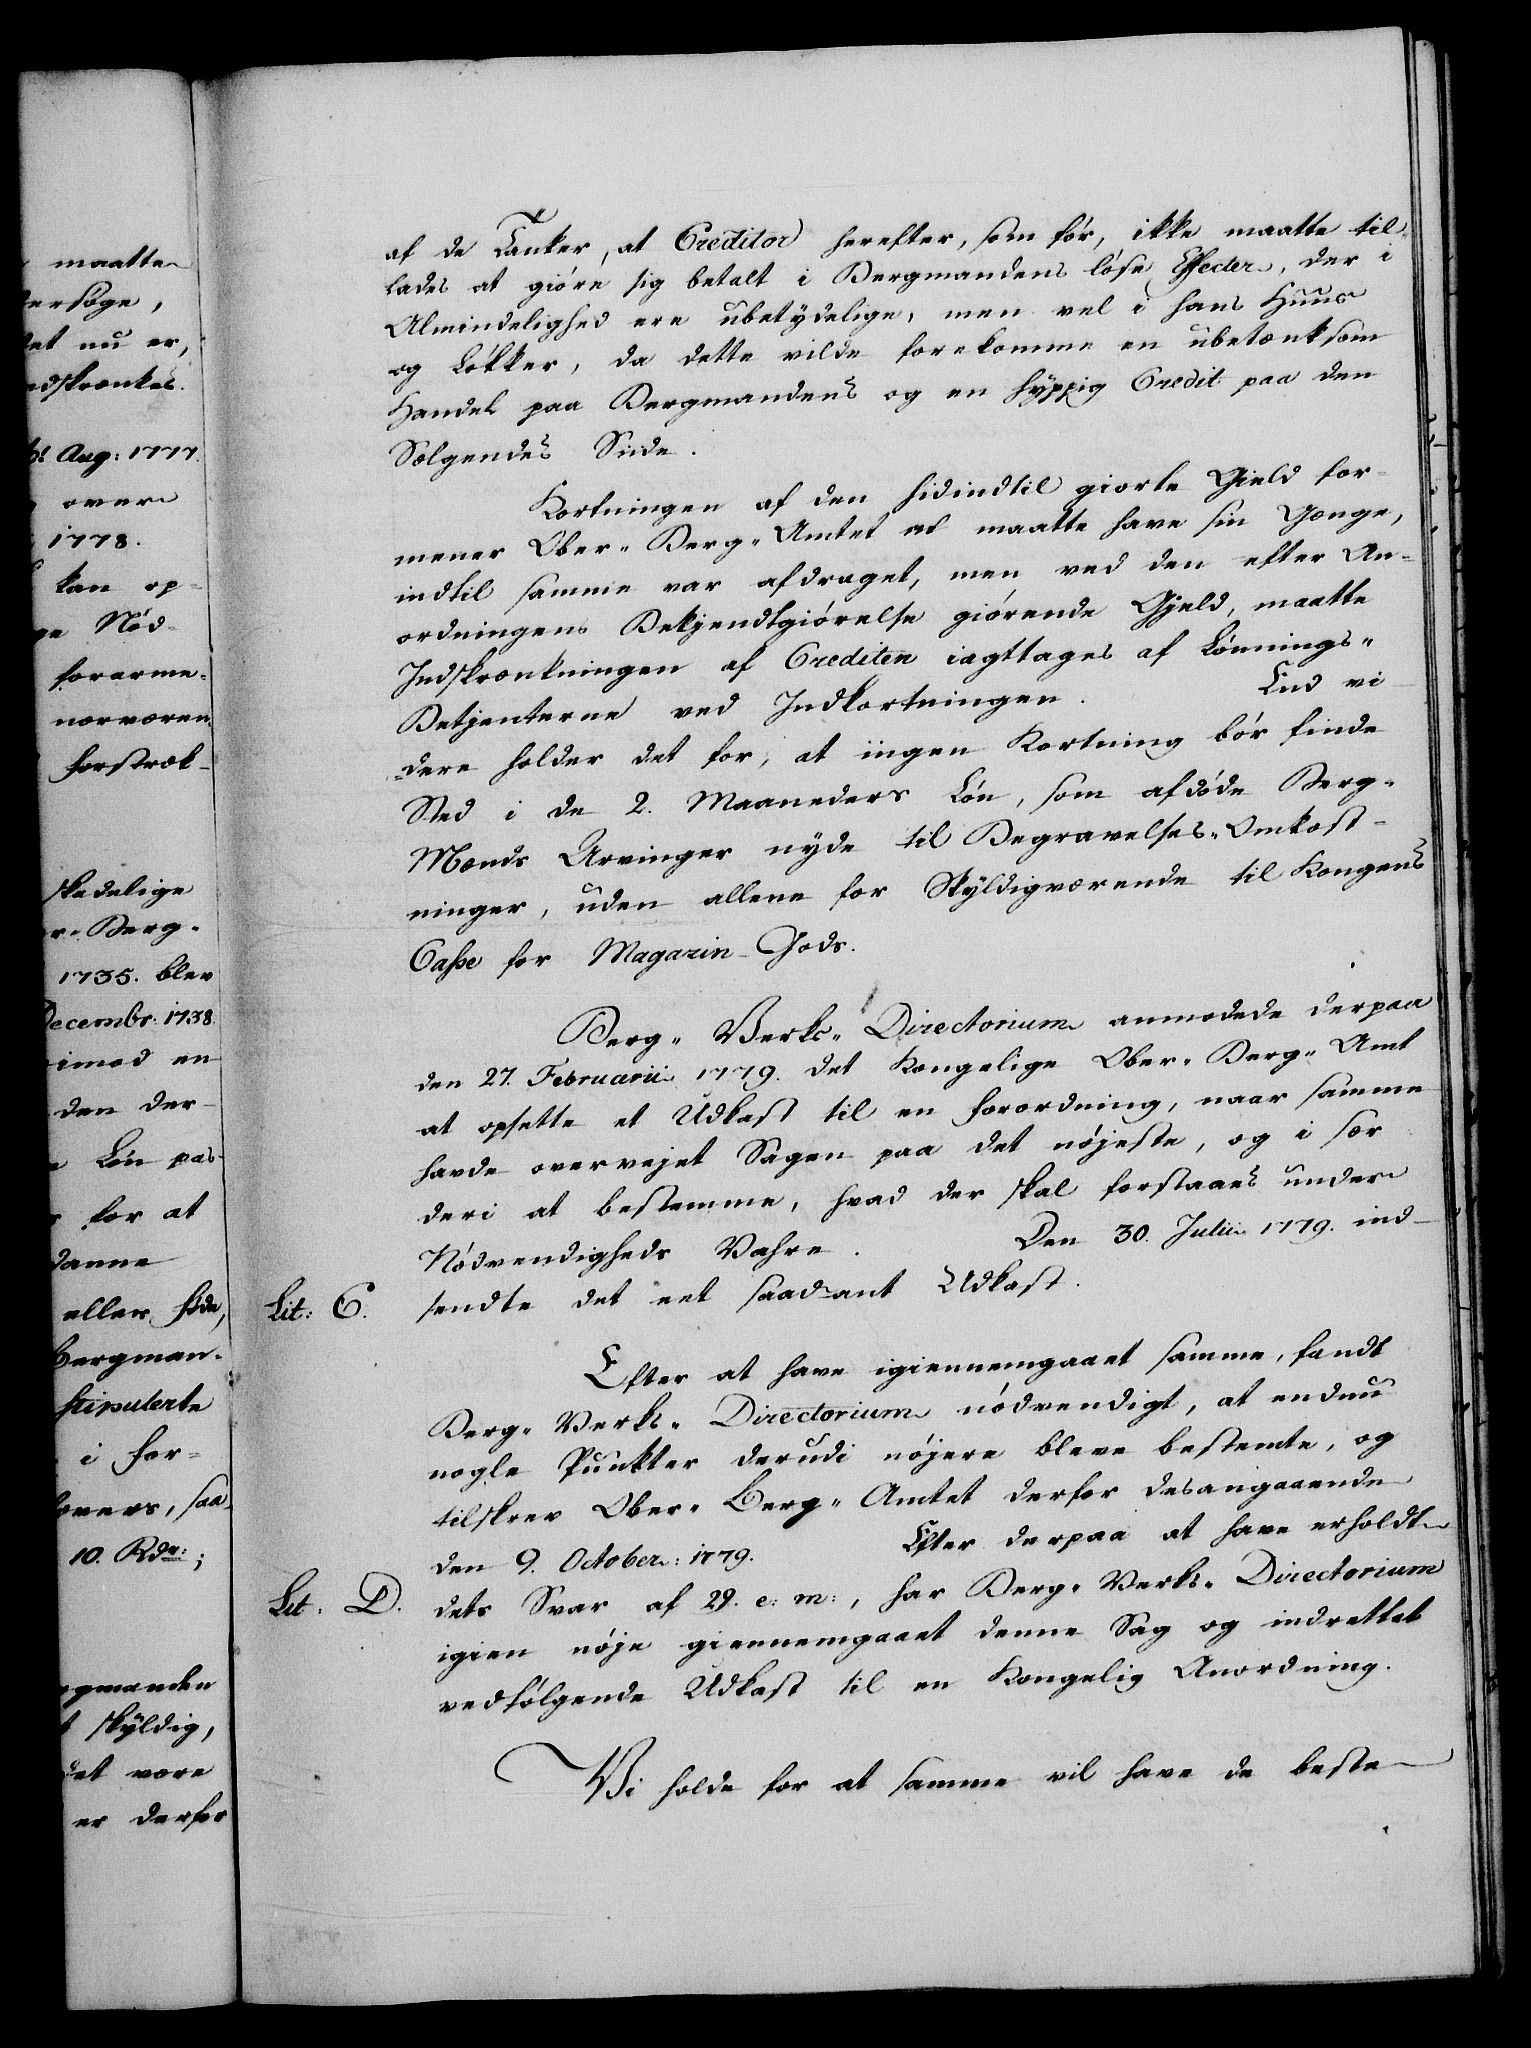 maatte
dersøge,
det nu er,
ndskrænkes.
Aug: 1777.
over
1778.
kan op-
ge Nød-
forarme-
nærværen
forstræk-
skadelige
r-Berg-
1735. blev
Decembr: 1738.
imod en
den der-
Løn pas-
for at
danne
eller føde,
Bergman-
stipulerte
i for-
overs, saa
10. Rdr:;
gmanden
skyldig,
et være
er derfor
af de Tanker, at Creditor herefter, som før, ikke maatte til-
lades at giøre sig betalt i Bergmandens løse Effecter, der i
Almindelighed ere ubetydelige, men vel i hans Huus
og Løkker, da dette vilde forekomme en ubetænksom
Handel paa Bergmandens og en hyppig Credit paa den
Sælgendes Siide.
Kortningen af den hidindtil giorte Gield for-
mener Ober-Berg-Amtet at maatte have sin Gænge,
indtil samme var afdraget, men ved den efter An-
ordningens Bekjendtgiørelse giørende Gjeld, maatte
Indskrænkningen af Crediten iagttages af Lønnings-
Betjenterne ved Indkortningen. End vi
dere holder det for, at ingen Kortning bør finde
Sted i de 2. Maaneders Løn, som afdøde Berg-
Mænds Arvinger nyde til Begravelses-Omkost-
ninger, uden allene for Skyldigværende til Kongens
Casse for Magazin-Gods.
Berg-Verks-Directorium anmodede derpaa
den 27. Februarii 1779. det Kongelige Ober-Berg-Amt
at opsette et Udkast til en Forordning, naar samme
havde overvejet Sagen paa det nøjeste, og i sær
deri at bestemme, hvad der skal forstaaes under
Nødvendigheds Vahre. Den 30. Julii 1779. ind-
Lit: C. sendte det eet saadant Udkast.
Efter at have igiennemgaaet samme, fandt
Berg-Verks-Directorium nødvendigt, at endnu
nogle Punkter derudi nøjere bleve bestemte, og
tilskrev Ober-Berg-Amtet derfor desangaaende
den 9. October: 1779. Efter derpaa at have erholdt
Lit. D. dets Svar af 29. e: m:, har Berg-Verks-Directorium
igien nøje giennemgaaet denne Sag og indrettet
vedfølgende Udkast til en Kongelig Anordning.
Vi holde for at samme vil have de beste